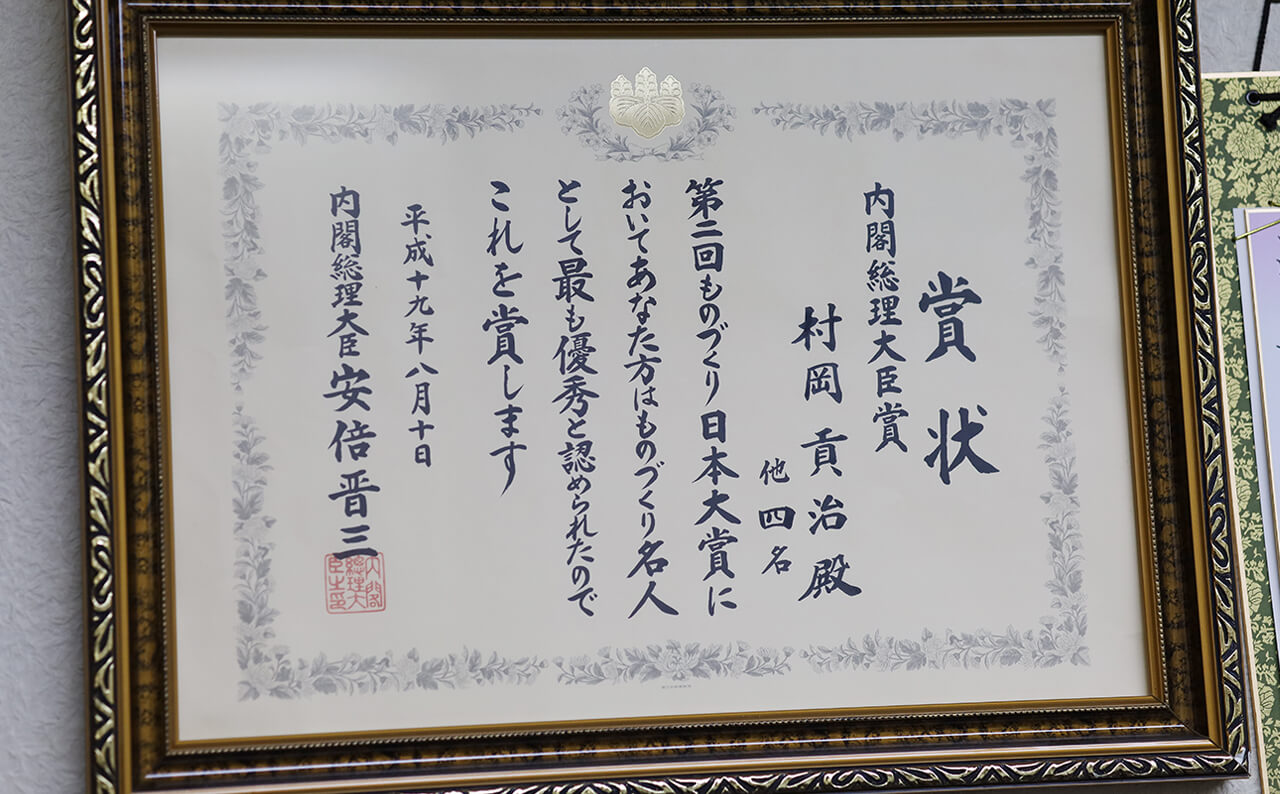 賞状
内閣総理大臣賞
村岡貢治殿
他四名
第二回ものづくり日本大賞に
おいてあなた方はものづくり名人
として最も優秀と認められたので
これを賞します
平成十九年八月十日
内閣総理大臣 安倍晋三
内閣
總理大
臣之印